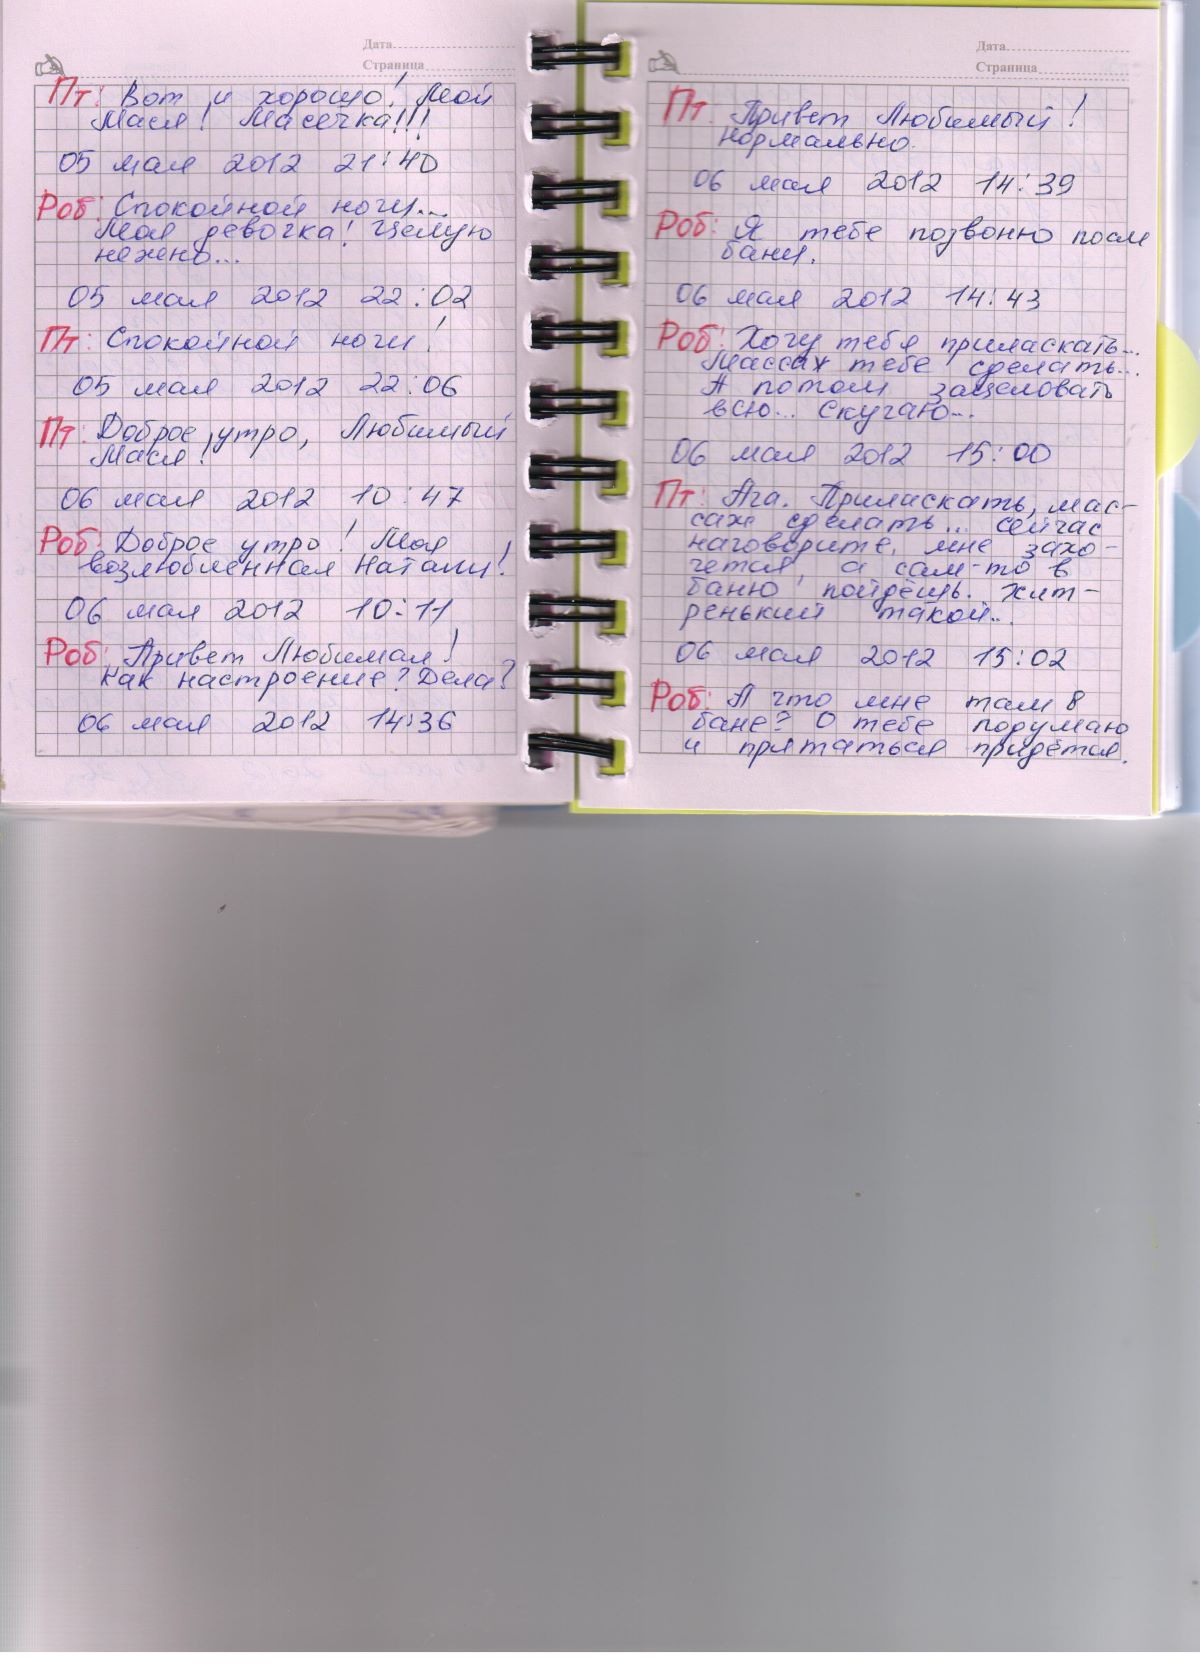 Дата
Страница
Пт: Вот и хорошо! Мой
Мася! Масечка!!!
05 мая 2012 21:40
Роб: Спокойной ночи...
Моя девочка! Целую
нежно...
05 мая 2012 22:02
Пт: Спокойной ночи!
05 мая 2012 22:06
Пт: Доброе утро, Любимый
Мася!
06 мая 2012 10:47
Роб: Доброе утро! Моя
возлюбленная Натали!
06 мая 2012 10:11
Роб: Привет Любимая!
Как настроение? Дела?
06 мая 2012 14:36
Дата
Страница
Пт. Привет Любимый!
нормально.
06 мая 2012 14:39
Роб: Я тебе позвоню после
бани.
06 мая 2012 14:43
Роб: Хочу тебя приласкать...
Массаж тебе сделать...
А потом зацеловать
всю... скучаю...
06 мая 2012 15:00
Пт: Ага. Приласкать, мас-
саж сделать... сейчас
наговорите, мне захо-
чется, а сам-то в
баню пойдёшь. Хит-
ренький такой...
06 мая 2012 15:02
Роб: А что мне там в
бане? О тебе подумаю
и прятаться придётся.